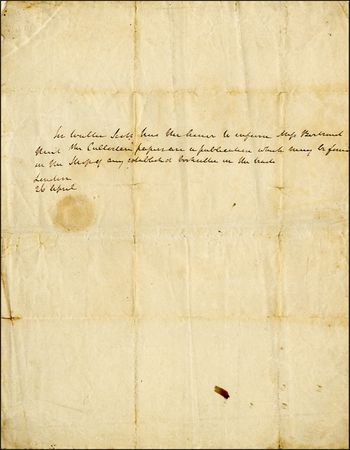 Sir Walter Scott has the honor to inform Miss
that the Culloden papers are a publication which may be found
in the Shop of any established bookseller in the trade
London
26 April